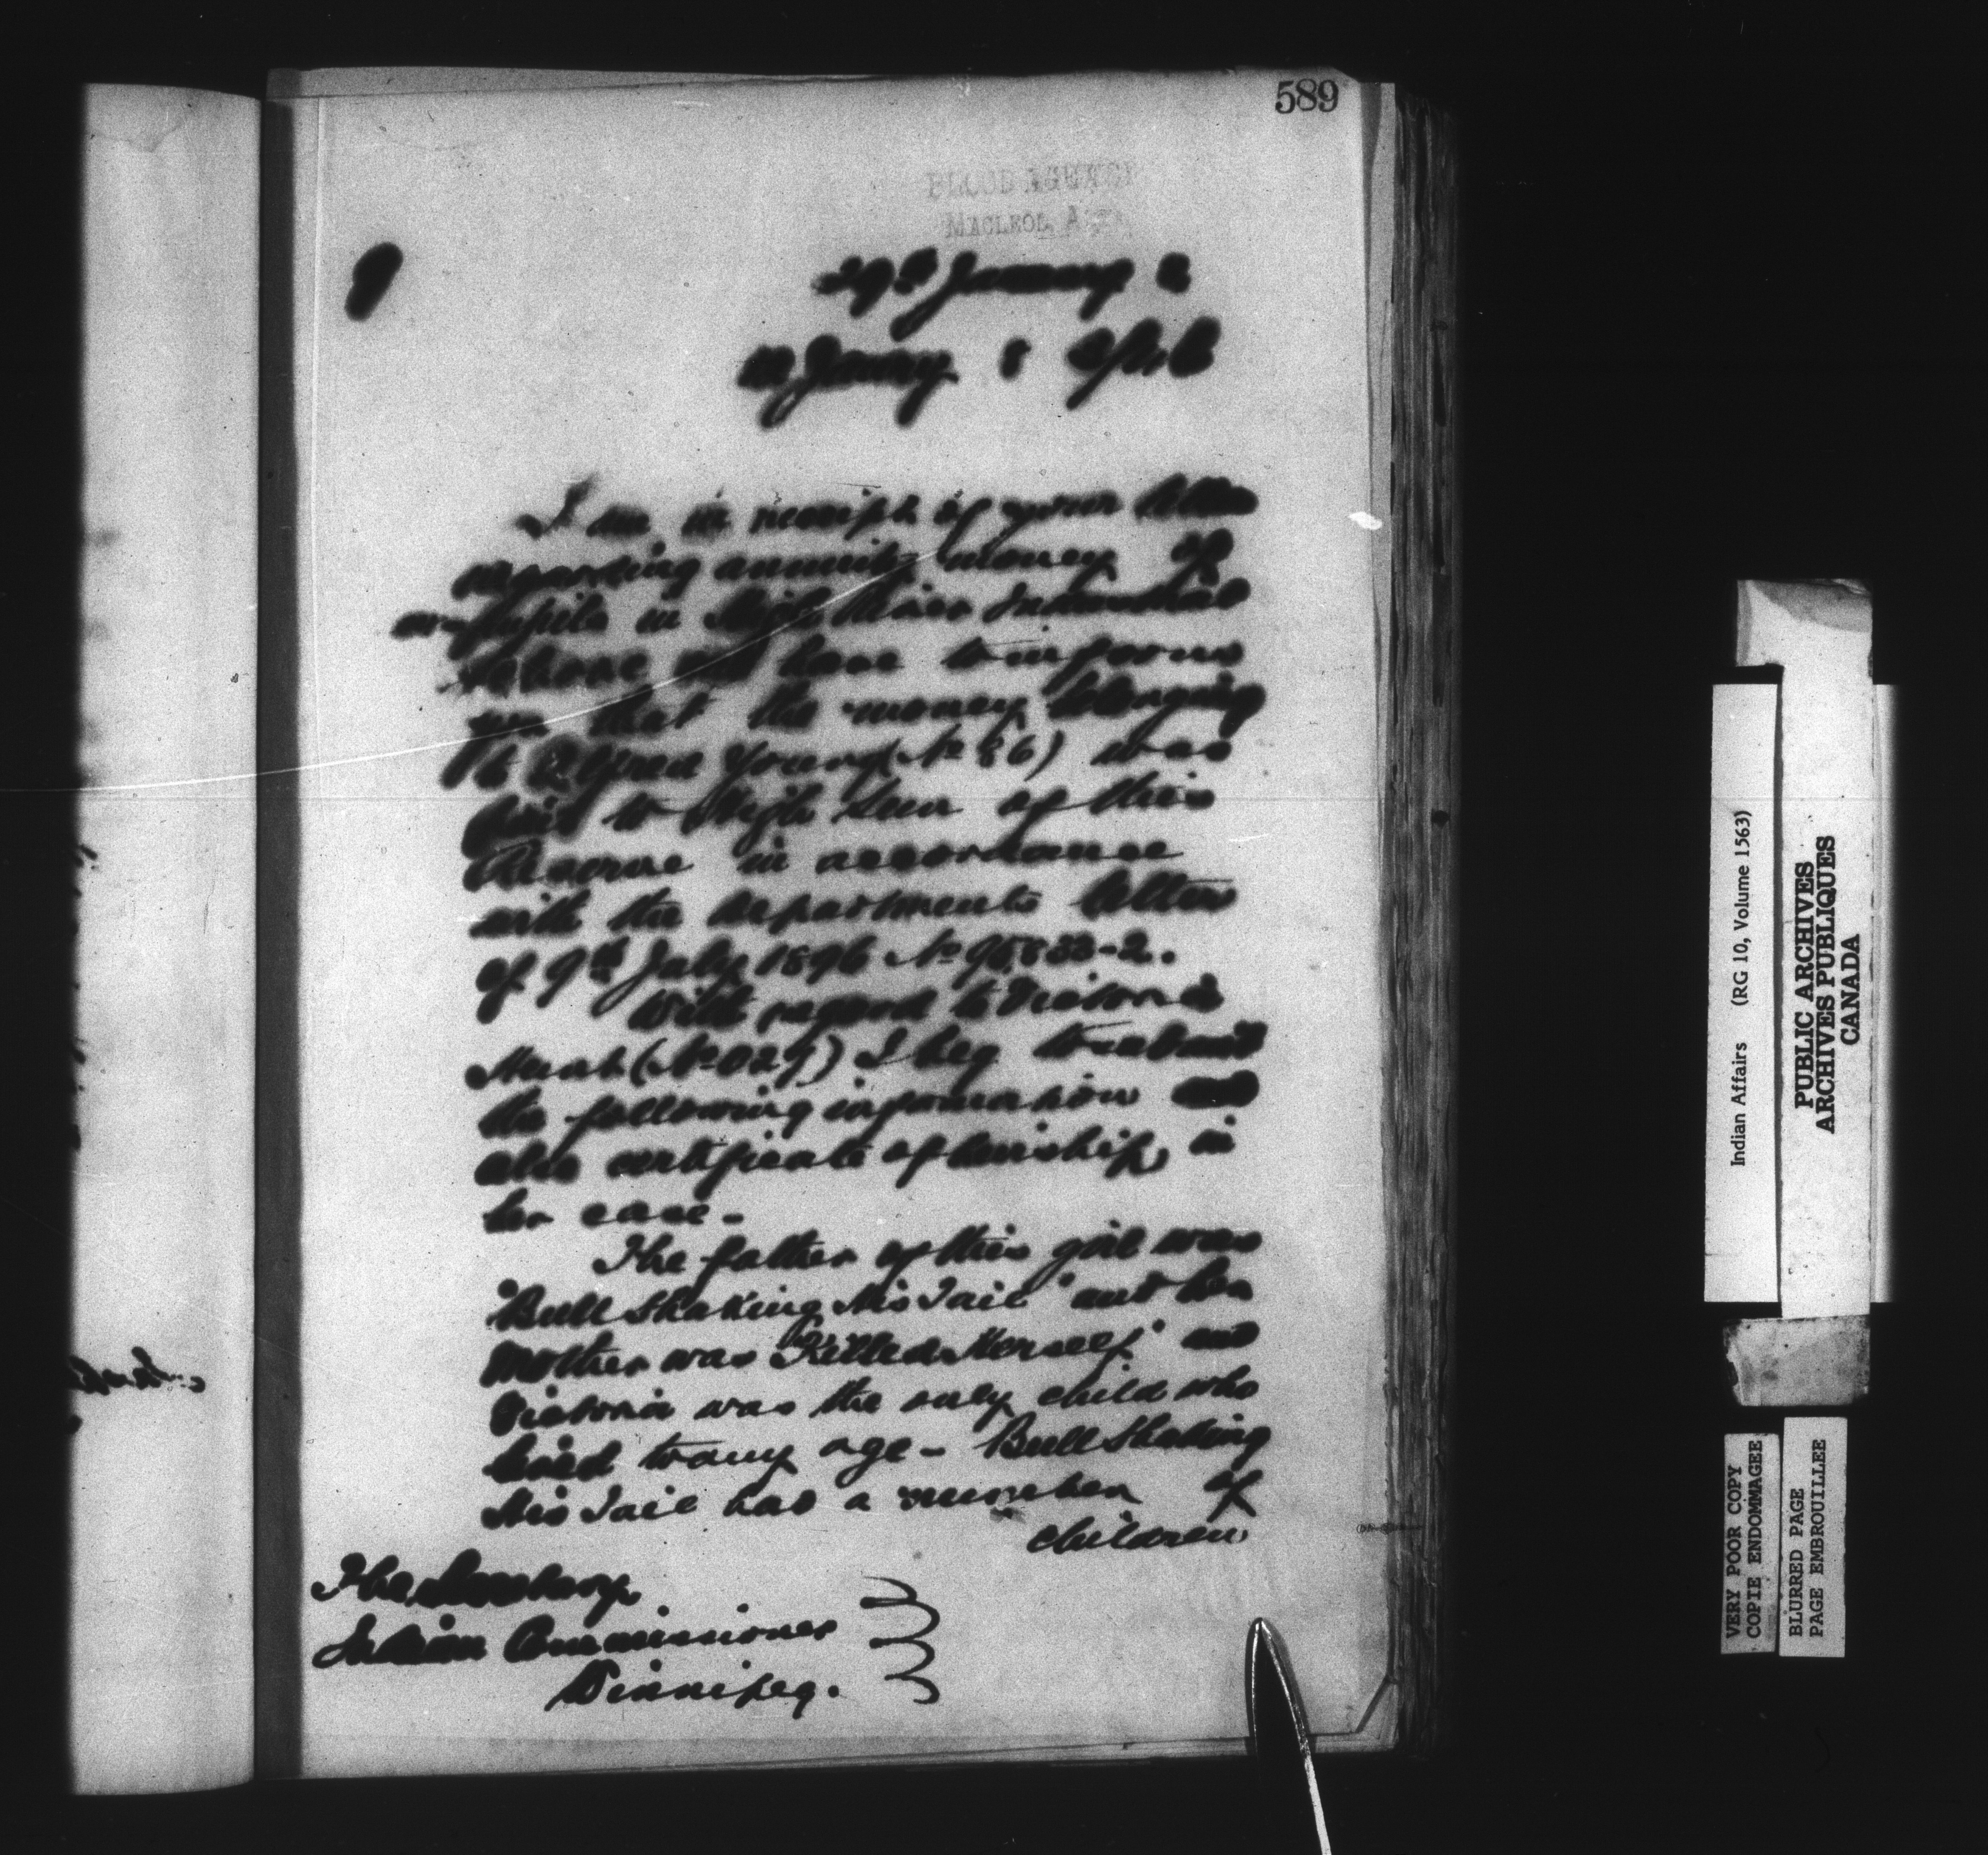 589
BLOOD AGENCY
MACLEOD, A
29th January 2
I am in receipt of your letter
regarding annuity money of
ex-pupils in High River Industrial
School and have to inform
you that the money belonging
to Alfred Young (No 86) was
paid to High Sun of this
Reserve in accordance
with the Departments letter
of 9th July 1896 No
With regard to Victoria
(No 029) I beg to submit
the following information and
also certificate of heirship, in
her case -
The father of this girl was
"Bull Shaking His Tail" and her
Mother was "Killed Herself" and
Victoria was the only child who
lived to any age - Bull Shaking
His Tail had a number of
children
The Secretary
Indian Commissioner
Winnipeg.
Indian Affairs (RG 10, Volume 1563)
PUBLIC ARCHIVES
ARCHIVES PUBLIQUES
CANADA
VERY POOR COPY
COPIE ENDOMMAGEE
BLURRED PAGE
PAGE EMBROUILLEE